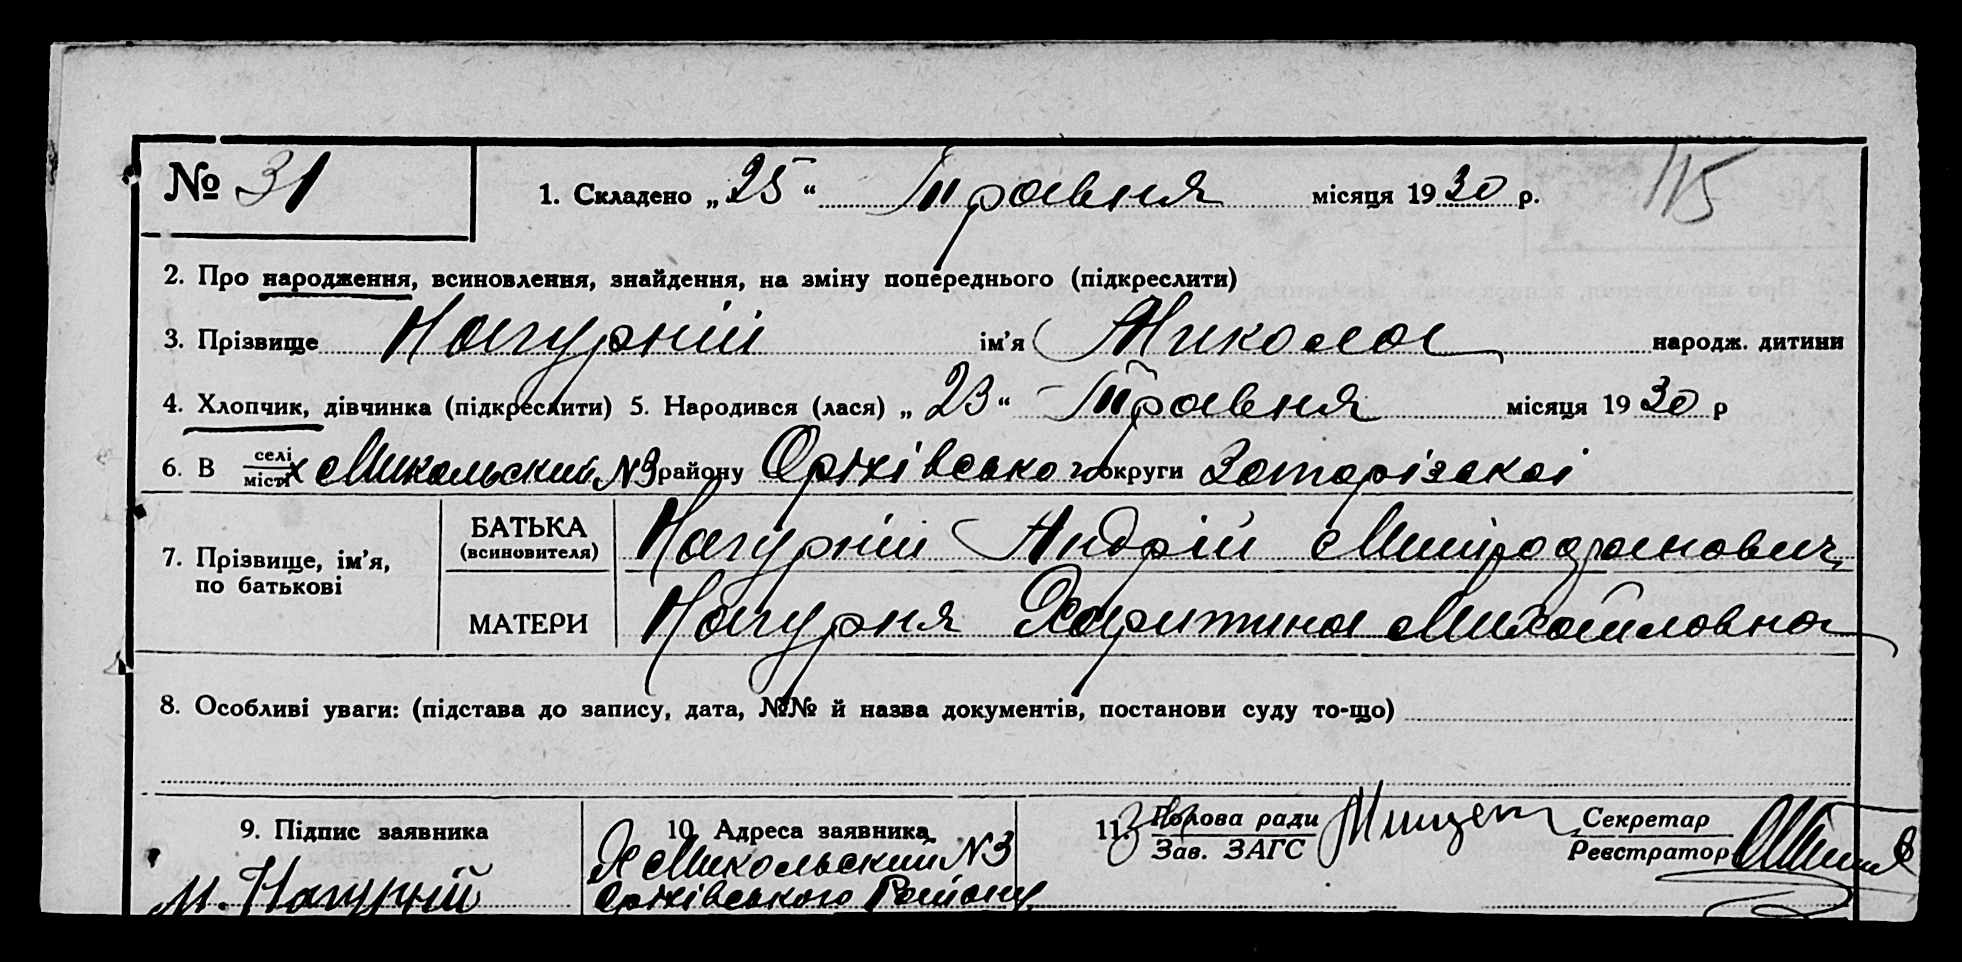 № 31 1. Складено „25“ Травня місяця 1930 р. 115
2. Про народження, всиновлення, знайдення, на зміну попереднього (підкреслити)
3. Прізвище Нагурній ім’я Микола народж. дитини
4. Хлопчик, дівчинка (підкреслити) 5. Народився (лася) „23“ Травня місяця 1930 р
6. В селі місті х Микольский N3 району Оріхівського округи Запорізскої
7. Прізвище, ім’я, по батькові
БАТЬКА (всиновителя) Нагурній Андрій Митрофанович
МАТЕРИ Нагурня Харитина Михайловна
8. Особливі уваги: (підстава до запису, дата, №№ й назва документів, постанови суду то-що)
9. Підпис заявника 10. Адреса заявника 11. Голова ради Секретар
Зав. ЗАГС Реєстратор
Х Микольский N3
Нагурній Оріхівського Району